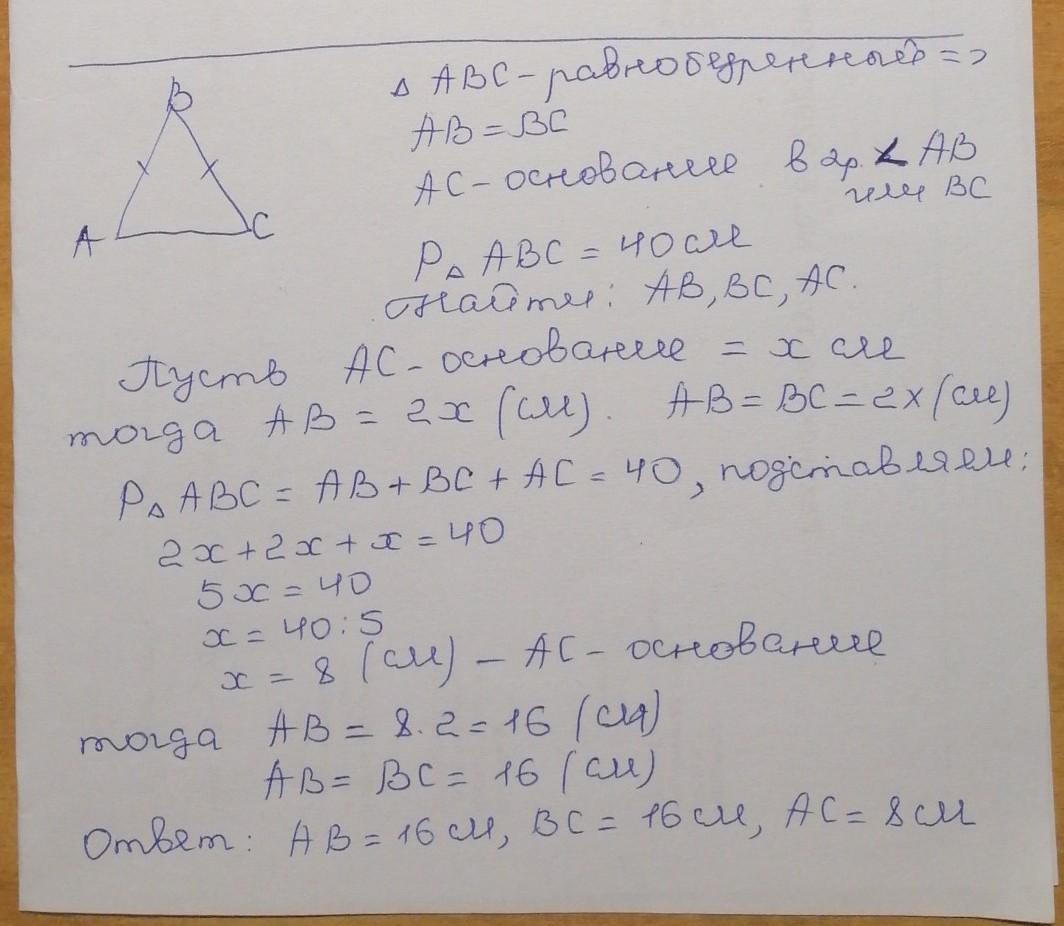 B
A
C
△ ABC - равнобедренный =>
AB = BC
AC - основание в 2р. < AB
или BC
P△ ABC = 40 см
Найти: AB, BC, AC.
Пусть AC - основание = x см
тогда AB = 2x (см). AB = BC = 2x (см)
P△ ABC = AB + BC + AC = 40, подставляем:
2x + 2x + x = 40
5x = 40
x = 40 : 5
x = 8 (см) - AC - основание
тогда AB = 8 · 2 = 16 (см)
AB = BC = 16 (см)
Ответ: AB = 16 см, BC = 16 см, AC = 8 см